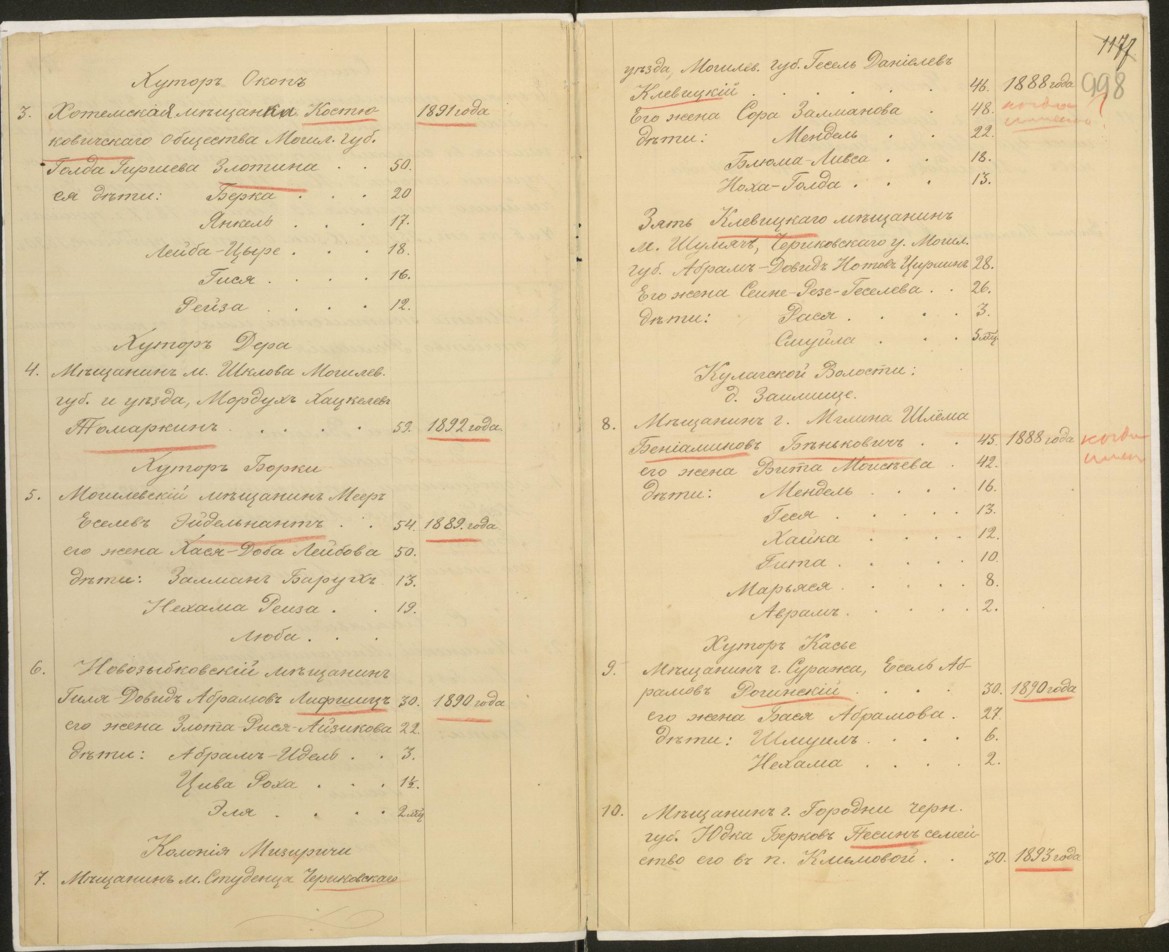 Хуторъ Окопъ
3. Хотемская мѣщанка Костю- 1891 года
ковичскаго общества Могил. губ.
Голда Гиршева Злотина . . 50.
ея дѣти: Берка . . . 20
Янкель . . . 17.
Лейба-Цыре . . . 18.
Гися . . . . 16.
Рейза . . . . 12.
Хуторъ Дера
4. Мѣщанинъ м. Шклова Могилев.
губ. и уѣзда, Мордухъ Хацкелевъ
Томаркинъ . . . . . 59. 1892 года
Хуторъ Борки
5. Могилевскій мѣщанинъ Мееръ
Еселевъ Эйдельнантъ . . 54. 1889. года
его жена Хася-Доба Лейбова 50.
дѣти: Залманъ Барухъ 13.
Нехама Реиза . . 19.
Люба . . .
6. Новозыбковскій мѣщанинъ
Гиля Довидъ Абрамовъ Лифшицъ 30. 1890 года
его жена Злота Рися-Айзикова 22.
дѣти: Абрамъ-Идель . . 3.
Цива Роха . . . 1½.
Эля . . . . 2 мц
Колонія Мизиричи
7. Мѣщанинъ м. Студенца Чериковскаго
1177
998
уѣзда, Могилев. губ. Гесель Даніелевъ
Клевицкій . . . . . . 46. 1888 года
Его жена Сора Залманова . 48. когда
дѣти: Мендель . . 22.
Блюма-Ливса . . 18.
Ноха-Голда . . . 13.
Зять Клевицкаго мѣщанинъ
м. Шумячъ, Чериковскаго у. Могил.
губ. Абрамъ-Довидъ Нотовъ Цирлинъ 28.
Его жена Сеине-Розе-Геселева . . 26.
дѣти: Рася . . . . 3.
Смуйла . . . 5 мц.
Кулагской Волости:
д. Заимище.
8. Мѣщанинъ г. Мглина Шлёма
Беніаминовъ Бѣньковичъ . . 45. 1888 года когда
его жена Вита Моисѣева . 42.
дѣти: Мендель . . . 16.
Геся . . . . . 13.
Хайка . . . . 12.
Гита . . . . . 10.
Марьяся . . . . 8.
Аврамъ . . . . . 2.
Хуторъ Касье
9. Мѣщанинъ г. Суража, Есель Аб-
рамовъ Рогинскій . . . . 30. 1890 года
его жена Бася Абрамова . 27.
дѣти: Шмуилъ . . . . 6.
Нехама . . . . 2.
10. Мѣщанинъ г. Городни черн.
губ. Юдка Берковъ Песинъ семей-
ство его въ п. Климовой . . 30. 1893 года